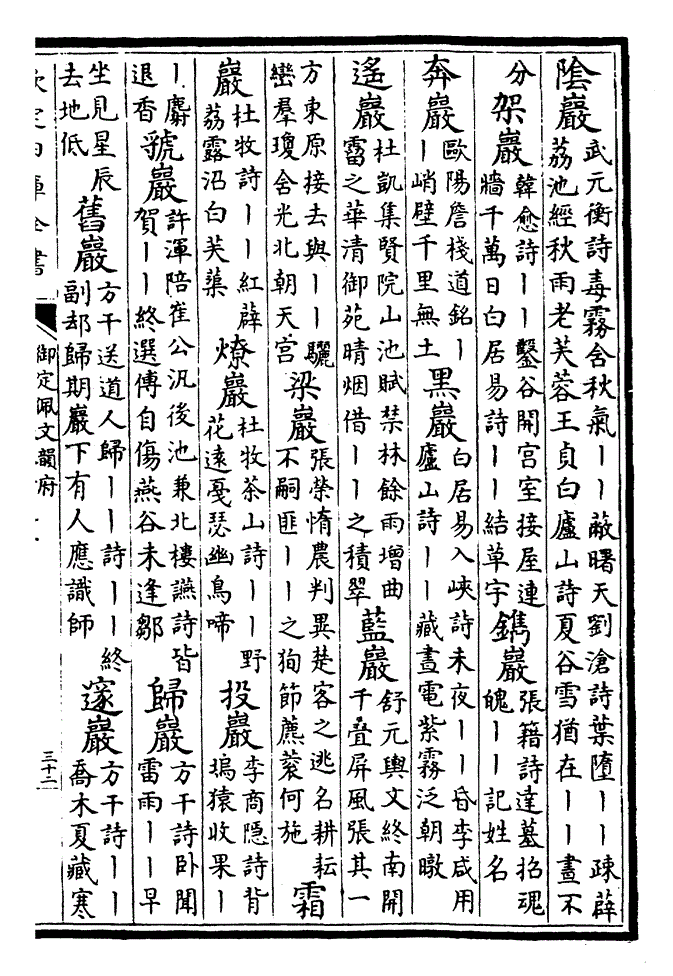 陰巖武元衡詩毒霧含秋氣丨丨蔽曙天劉滄詩葉墮丨丨疎薜
荔池經秋雨老芙蓉王貞白廬山詩夏谷雪猶在丨丨晝不
分架巖韓愈詩丨丨鑿谷開宮室接屋連
牆千萬日白居易詩丨丨結草宇
鐫巖張籍詩達墓招魂
魄丨丨記姓名
奔巖歐陽詹棧道銘丨
丨峭壁千里無土
黑巖白居易入峽詩未夜丨丨昏李咸用
廬山詩丨丨藏晝電紫霧泛朝暾
遙巖杜凱集賢院山池賦禁林餘雨增曲
霤之華清御苑晴烟借丨丨之積翠
藍巖舒元輿文終南開
千叠屏風張其一
方東原接去與丨丨驪
巒羣瓊含光北朝天宮
梁巖張縈惰農判異楚客之逃名耕耘
不嗣匪丨丨之狥節藨蔉何施
霜
巖杜牧詩丨丨紅薜
荔露沼白芙蕖
燎巖杜牧茶山詩丨丨野
花遠戞瑟幽鳥啼
投巖李商隱詩背
塢猿收果丨
丨麝
退香
號巖許渾陪崔公汎後池兼北樓讌詩皆
賀丨丨終選傅自傷燕谷未逢鄒
歸巖方干詩卧聞
雷雨丨丨早
坐見星辰
去地低
舊巖方干送道人歸丨丨詩丨丨終
副却歸期巖下有人應識師
邃巖方干詩丨丨
喬木夏藏寒
欽定四庫全書
御定佩文韻府
三十二